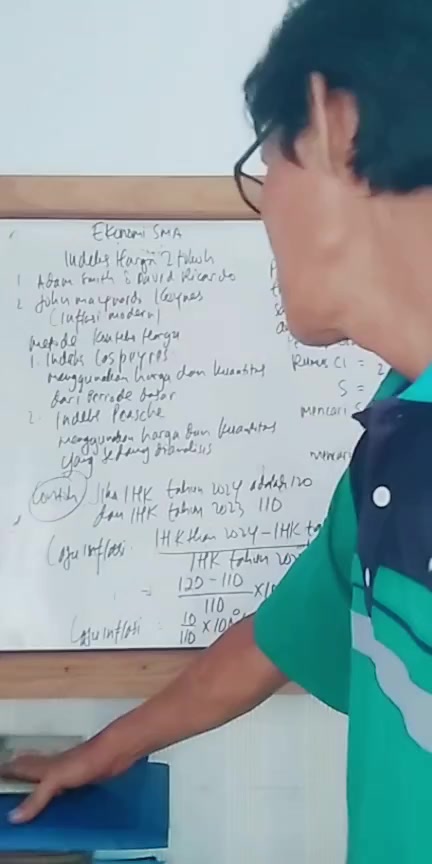 Ekonomi SMA
Indeks Harga 2 tokoh
1 Adam Smith & David Ricardo
2 John maynards Keynes
(Inflasi modern)
metode Harga
1. Indeks Laspeyres
menggunakan harga dan kuantitas
dari Periode dasar
2. Indeks Peasche
menggunakan harga dan kuantitas
yang sedang dianalisis
Contoh Jika IHK tahun 2024 adalah 120
dan IHK tahun 2023 110
Laju Inflasi: IHK thun 2024 - IHK
IHK tahun
= 120 - 110
110
Laju Inflasi : 10
110 x
Rumus C1 =
S =
mencari
mencari